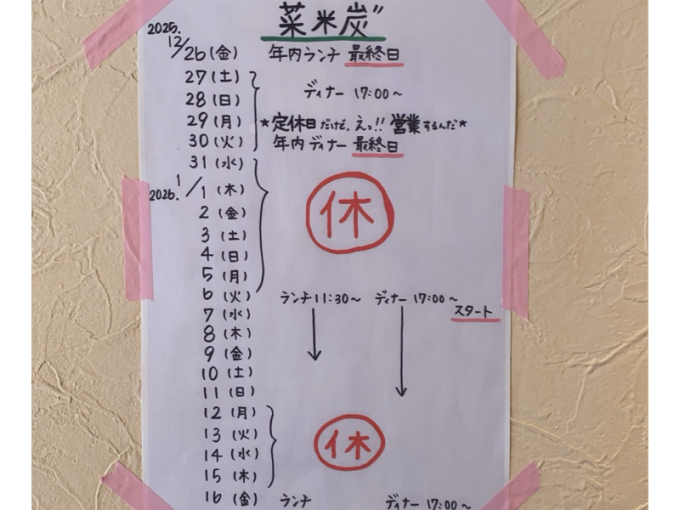 菜米炭"
2025.
12/26(金) 年内ランチ 最終日
27(土)
28(日) ディナー 17:00〜
29(月) ★定休日だけど、えっ!! 営業するんだ★
30(火) 年内ディナー 最終日
31(水)
2026. 1/1(木)
2(金) 休
3(土)
4(日)
5(月)
6(火) ランチ11:30〜 ディナー 17:00〜
7(水) スタート
8(木)
9(金)
10(土)
11(日)
12(月)
13(火) 休
14(水)
15(木)
16(金) ランチ ディナー 17:00〜